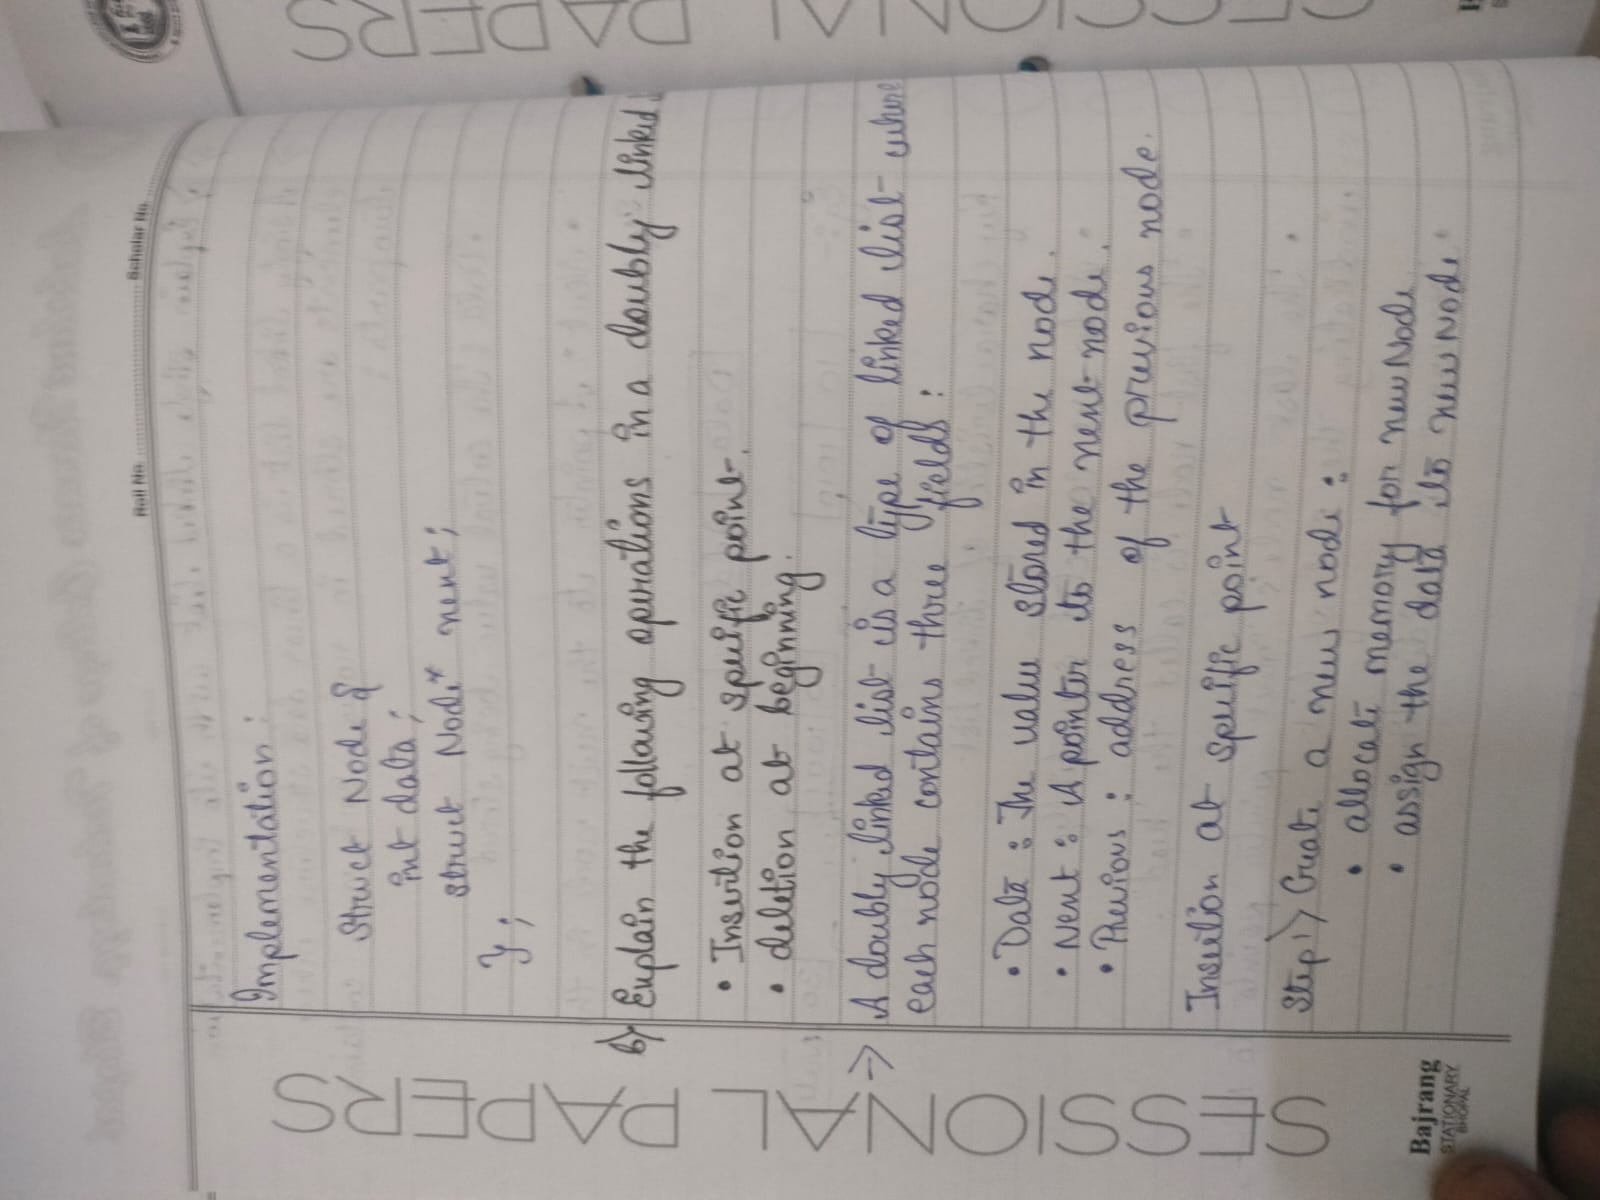 Roll No. ........................ Scholar No. ........
SESSIONAL PAPERS
Implementation :
Struct Node {
int data ;
struct Node* next ;
} ;
6) Explain the following operations in a doubly linked
• Insertion at specific point.
• deletion at beginning.
→ A doubly linked list is a type of linked list where
each node contains three fields :
• Data : The value stored in the node.
• Next : A pointer to the next node.
• Previous : address of the previous node.
Insertion at specific point
Step 1) Create a new node :
• allocate memory for newNode
• assign the data to newNode
Bajrang
STATIONARY
BHOPAL